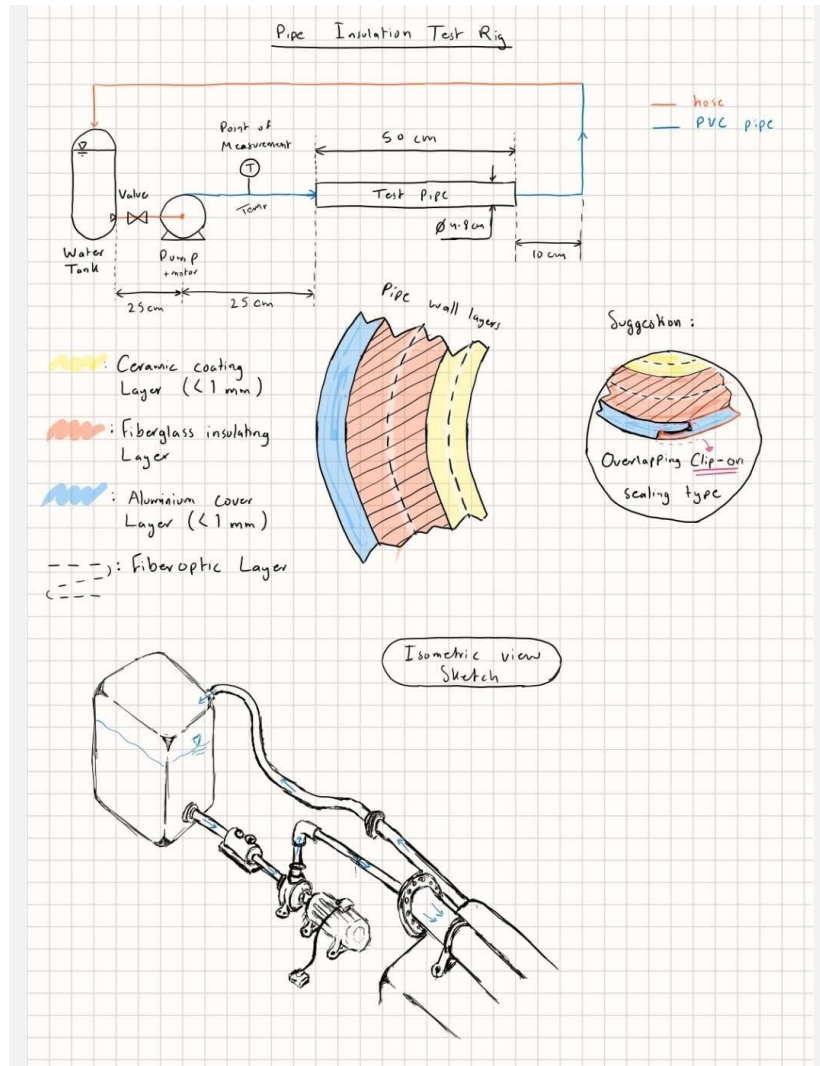 Pipe Insulation Test Rig
hose
PVC pipe
Point of
Measurement
T
50 cm
Valve
Temp
Test Pipe
Ø 4.8 cm
Water
Tank
Pump
+ motor
10 cm
25 cm
25 cm
Pipe wall layers
Suggestion :
: Ceramic coating
Layer (< 1 mm)
: Fiberglass insulating
Layer
: Aluminium cover
Layer (< 1 mm)
: Fiberoptic Layer
Overlapping Clip-on
sealing type
Isometric view
Sketch